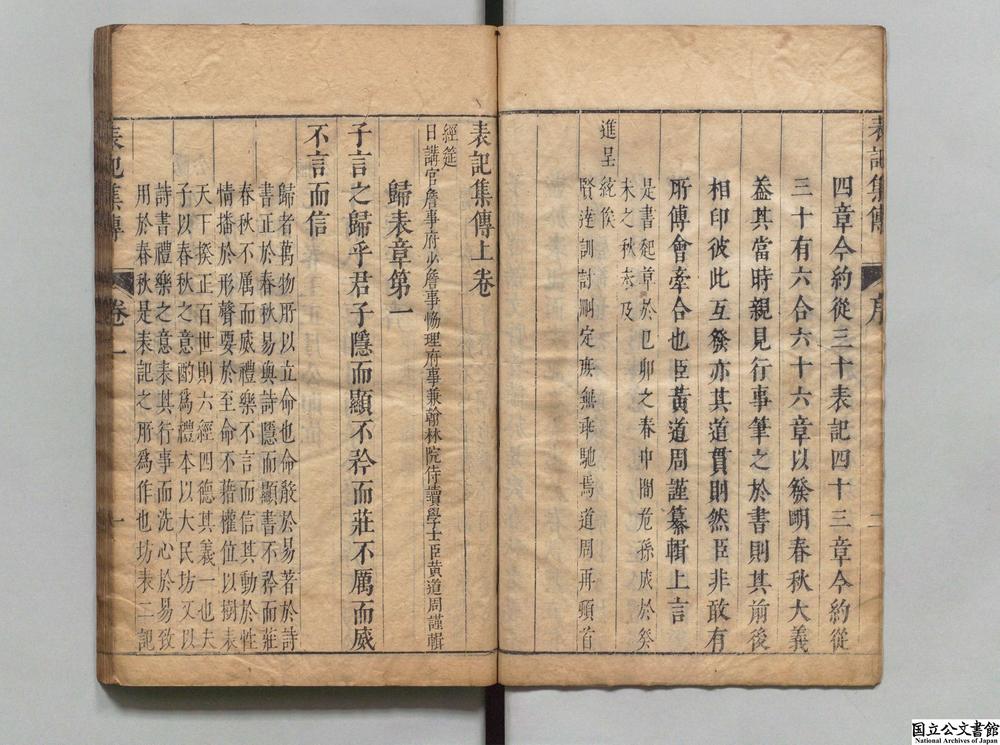 表記集傳
序
二
四章今約從三十表記四十三章今約從
三十有六合六十六章以發明春秋大義
葢其當時親見行事筆之於書則其前後
相印彼此互發亦其道貫則然臣非敢有
所傅會牽合也臣黃道周謹纂輯上言
是書起草於己卯之春中間危孫成於癸
未之秋未及
進呈
統俟
賢達訓討刪定庶無乖馳焉道周再頓首
表記集傳上卷
經筵
日講官詹事府少詹事協理府事兼翰林院侍讀學士臣黃道周謹輯
歸表章第一
子言之歸乎君子隱而顯不矜而莊不厲而威
不言而信
歸者萬物所以立命也命發於易著於詩
書正於春秋易與詩隱而顯書不矜而莊
春秋不厲而威禮樂不言而信其動於性
情播於形聲要於至命不藉權位以樹表
天下揆正百世則六經四德其義一也夫
子以春秋之意酌為禮本以大民坊又以
詩書禮樂之意表其行事而洗心於易致
用於春秋是表記之所為作也坊表二記
表記集傳
卷一
一
国立公文書館
National Archives of Japan